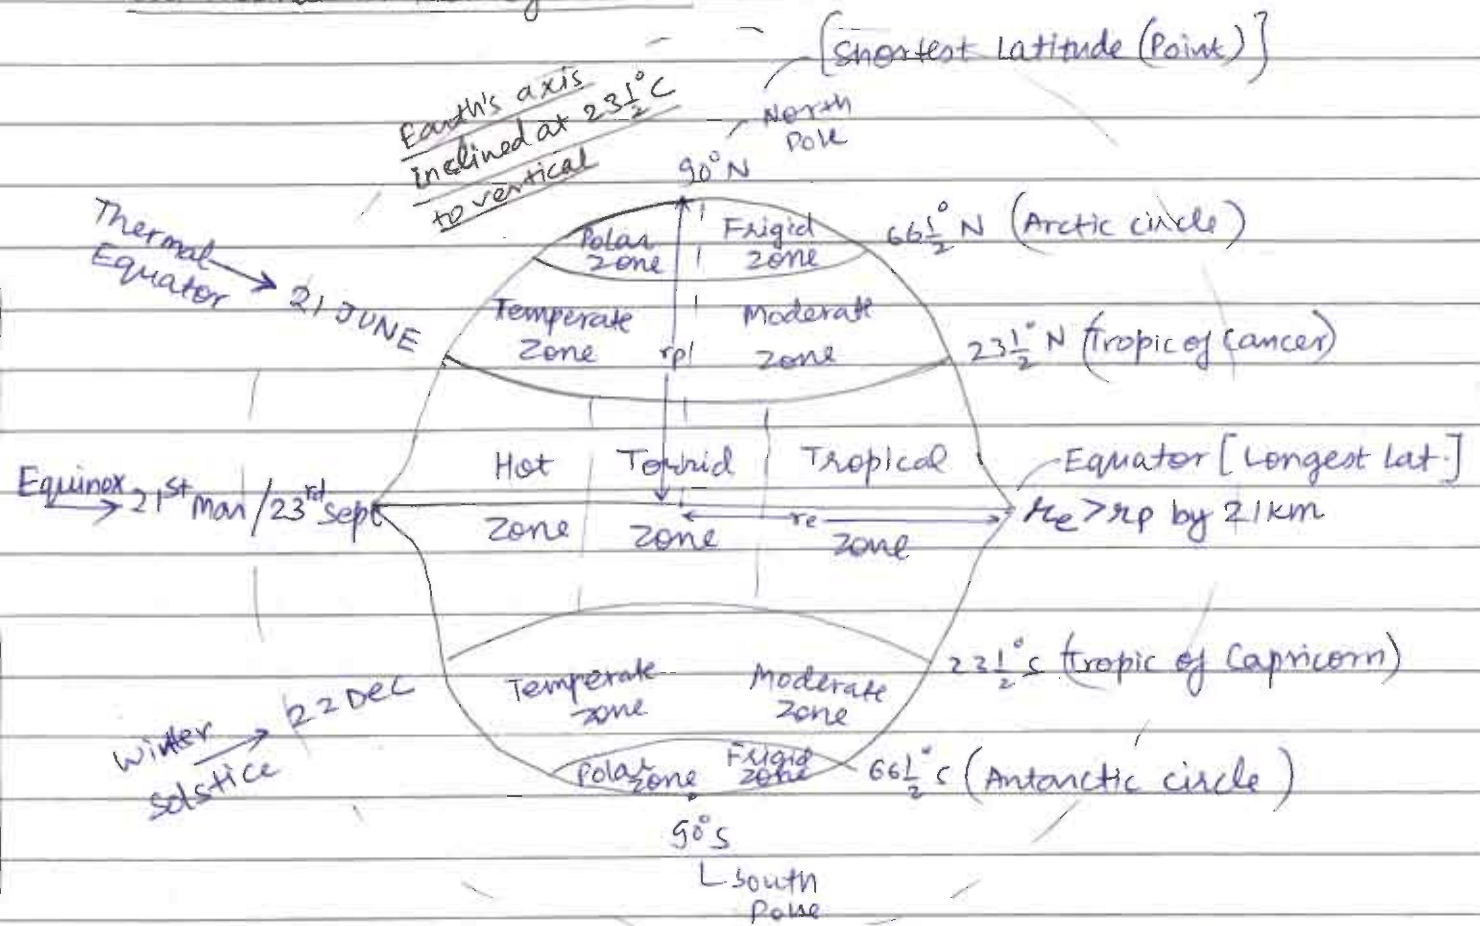 [Shortest Latitude (Point)]
Earth's axis
inclined at 23½°C
to vertical
North
Pole
90°N
Thermal
Equator → 21 JUNE
Polar
zone
Frigid
zone
66½°N (Arctic circle)
Temperate
Zone
rp
Moderate
zone
23½°N (Tropic of Cancer)
Hot
zone
Torrid
zone
Tropical
zone
Equinox → 21st Mar/23rd Sept
re
Equator [Longest Lat.]
re>rp by 21km
Temperate
zone
Moderate
zone
23½°S (tropic of Capricorn)
Winter
Solstice → 22 DEC
Polar
zone
Frigid
zone
66½°S (Antarctic circle)
90°S
South
Pole